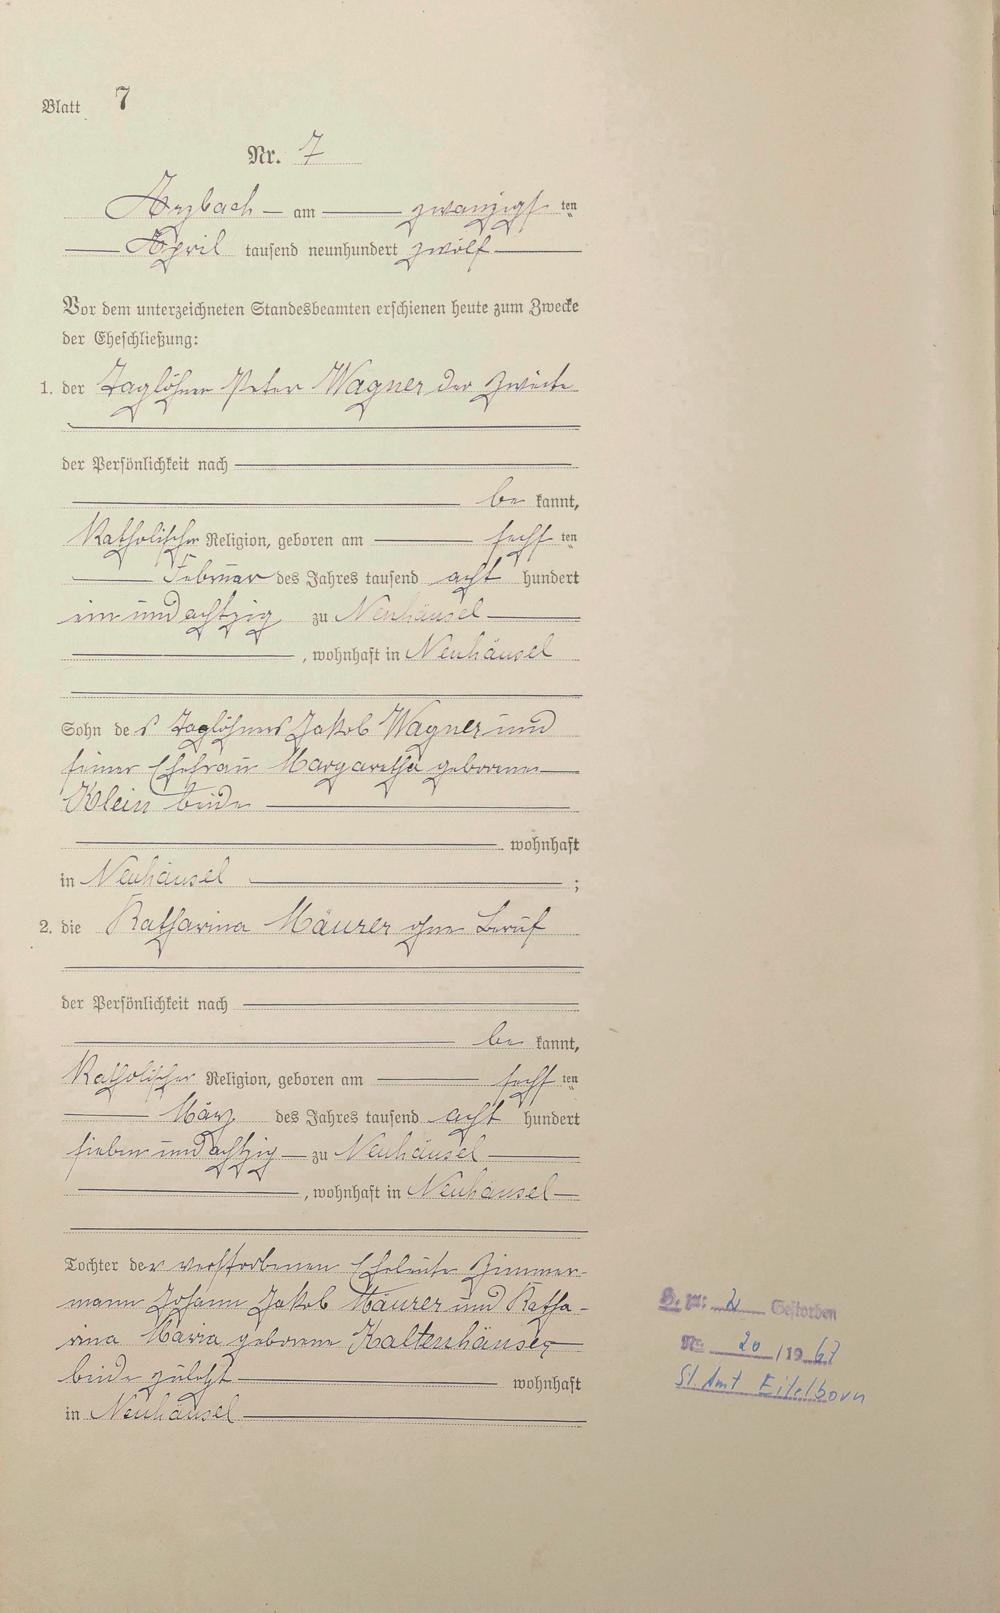 Blatt 7
Nr. 7
Arzbach am zwanzigsten
April tausend neunhundert zwölf
Vor dem unterzeichneten Standesbeamten erschienen heute zum Zwecke
der Eheschließung:
1. der Taglöhner Peter Wagner der Zweite
der Persönlichkeit nach
be kannt,
Katholischer Religion, geboren am sechsten
Februar des Jahres tausend acht hundert
ein und achtzig zu Neuhäusel
, wohnhaft in Neuhäusel
Sohn des Taglöhners Jakob Wagner und
seiner Ehefrau Margaretha geborene
Klein beide
wohnhaft
in Neuhäusel ;
2. die Katharina Mäurer ohne Beruf
der Persönlichkeit nach
be kannt,
Katholischer Religion, geboren am sechsten
März des Jahres tausend acht hundert
sieben und achtzig zu Neuhäusel
, wohnhaft in Neuhäusel
Tochter der verstorbenen Eheleute Zimmer-
mann Johann Jakob Mäurer und Katha-
rina Maria geborene Kaltenhäuser
beide zuletzt wohnhaft
in Neuhäusel
Gestorben
Nr. 20 / 1967
St. Amt Eitelborn